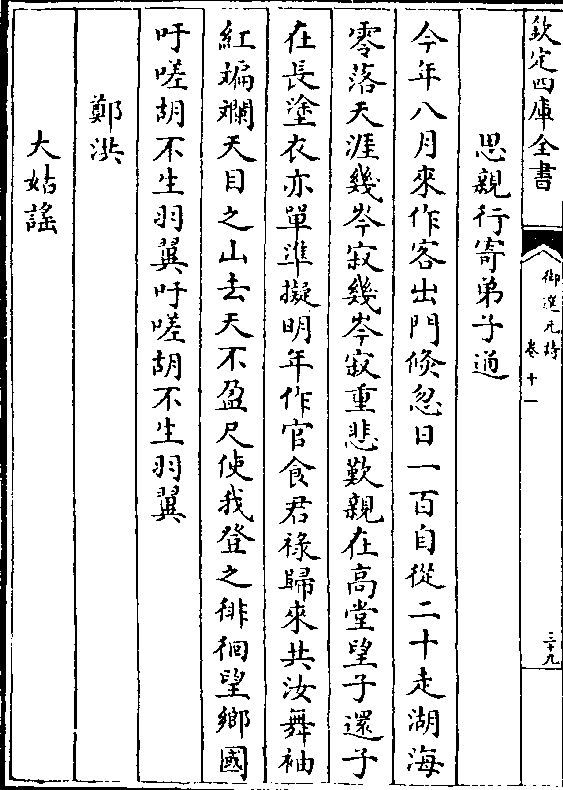 欽定四庫全書
御選元詩
卷十一
三十九
思親行寄弟子通
今年八月來作客出門倏忽日一百自從二十走湖海
零落天涯幾岑寂幾岑寂重悲歎親在高堂望子還子
在長塗衣亦單準擬明年作官食君祿歸來共汝舞袖
紅斒斕天目之山去天不盈尺使我登之徘徊望鄉國
吁嗟胡不生羽翼吁嗟胡不生羽翼
鄭洪
大姑謠